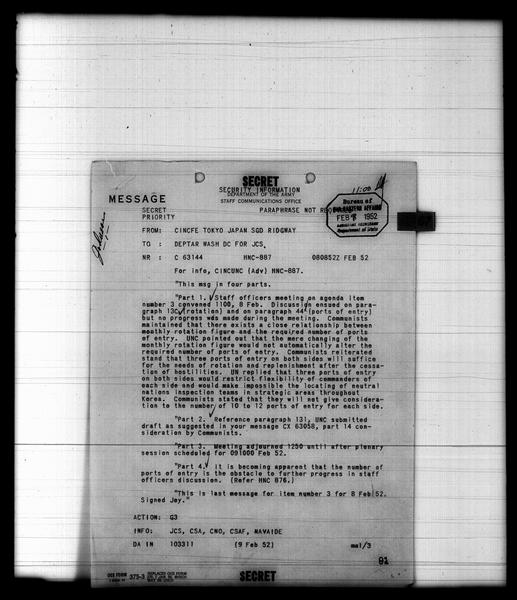 SECRET
SECURITY INFORMATION
DEPARTMENT OF THE ARMY
STAFF COMMUNICATIONS OFFICE
11:00
MESSAGE
SECRET
PRIORITY
PARAPHRASE NOT
Bureau of
FAR EASTERN AFFAIRS
FEB 8 1952
Department of State
FROM: CINCFE TOKYO JAPAN SGD RIDGWAY
TO : DEPTAR WASH DC FOR JCS
NR : C 63144 HNC-887 080852Z FEB 52
For info, CINCUNC (Adv) HNC-887.
"This msg in four parts.
"Part 1. Staff officers meeting on agenda item
number 3 convened 1100, 8 Feb. Discussion ensued on para-
graph 13C (rotation) and on paragraph 44 (ports of entry)
but no progress was made during the meeting. Communists
maintained that there exists a close relationship between
monthly rotation figure and the required number of ports
of entry. UNC pointed out that the mere changing of the
monthly rotation figure would not automatically alter the
required number of ports of entry. Communists reiterated
stand that three ports of entry on both sides will suffice
for the needs of rotation and replenishment after the cessa-
tion of hostilities. UN replied that three ports of entry
on both sides would restrict flexibility of commanders of
each side and would make impossible the locating of neutral
nations inspection teams in strategic areas throughout
Korea. Communists stated that they will not give considera-
tion to the number of 10 to 12 ports of entry for each side.
"Part 2. Reference paragraph 131, UNC submitted
draft as suggested in your message CX 63058, part 14 con-
sideration by Communists.
"Part 3. Meeting adjourned 1250 until after plenary
session scheduled for 091000 Feb 52.
"Part 4. It is becoming apparent that the number of
ports of entry is the obstacle to further progress in staff
officers discussion. (Refer HNC 876.)
"This is last message for item number 3 for 8 Feb 52.
Signed Joy."
ACTION: G3
INFO: JCS, CSA, CNO, CSAF, NAVAIDE
DA IN 103311 (9 Feb 52) mal/3
91
OCS FORM 375-3
SECRET